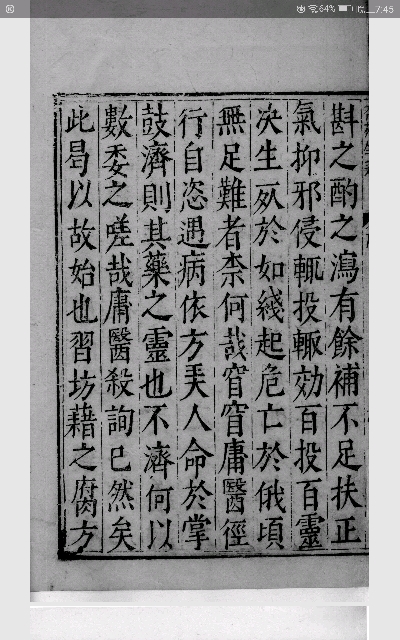 64% 晚__7:45
斟之酌之瀉有餘補不足扶正
氣抑邪侵輒投輙効百投百靈
决生死於如綫起危亡於俄頃
無足難者柰何哉窅窅庸醫徑
行自恣遇病依方天人命於掌
鼓濟則其藥之靈也不濟何以
數委之嗟哉庸醫殺詢已然矣
此曷以故始也習坊藉之腐方